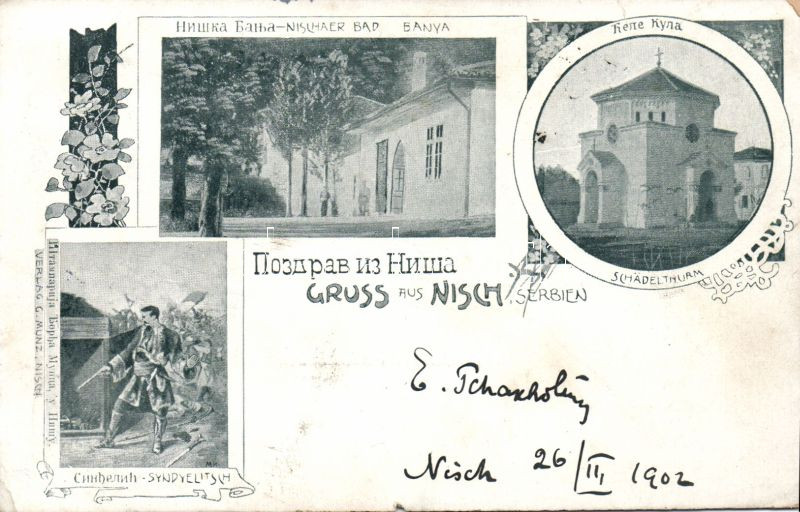 Нишка Бања – NISCHAER BAD BANYA
Ћеле Кула
SCHÄDELTHURM
Поздрав из Ниша
GRUSS AUS NISCH, SERBIEN
Штампарија Ђорђа Мунца, у Нишу.
VERLAG G. MUNZ. NISCH
Синђелић - SYNDYELITSCH
E.
Nisch 26/II, 1902